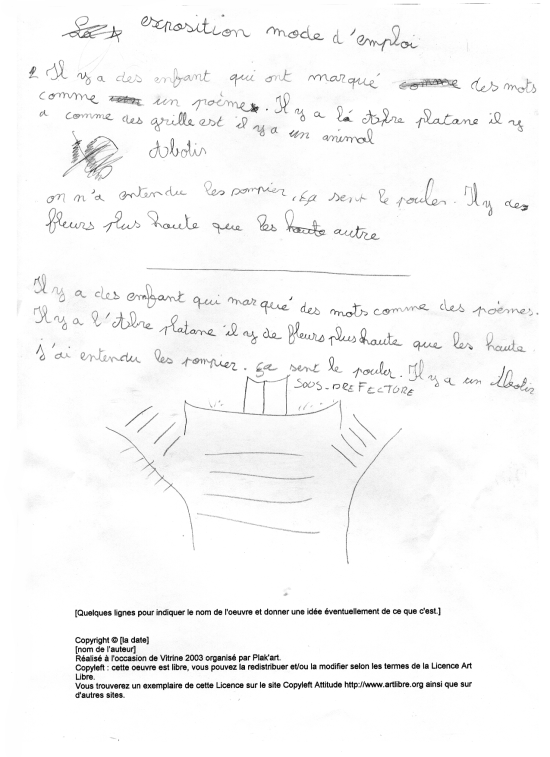 exposition mode d'emploi
2 Il y a des enfant qui ont marqué des mots
comme un poème. Il y a là Abre platane il y
a comme des grille est il y a un animal
Abotir
on n'a entendu les pompier. ça sent le pouler. Il y des
fleurs plus haute que les autre
Il y a des enfant qui marqué des mots comme des poèmes.
Il y a l'Abre platane il y de fleurs plus haute que les haute.
j'ai entendu les pompier. ça sent le pouler. Il y a un Abotir
SOUS-PREFECTORE
[Quelques lignes pour indiquer le nom de l'oeuvre et donner une idée éventuellement de ce que c'est.]
Copyright © [la date]
[nom de l'auteur]
Réalisé à l'occasion de Vitrine 2003 organisé par Plak'art.
Copyleft : cette oeuvre est libre, vous pouvez la redistribuer et/ou la modifier selon les termes de la Licence Art
Libre.
Vous trouverez un exemplaire de cette Licence sur le site Copyleft Attitude http://www.artlibre.org ainsi que sur
d'autres sites.